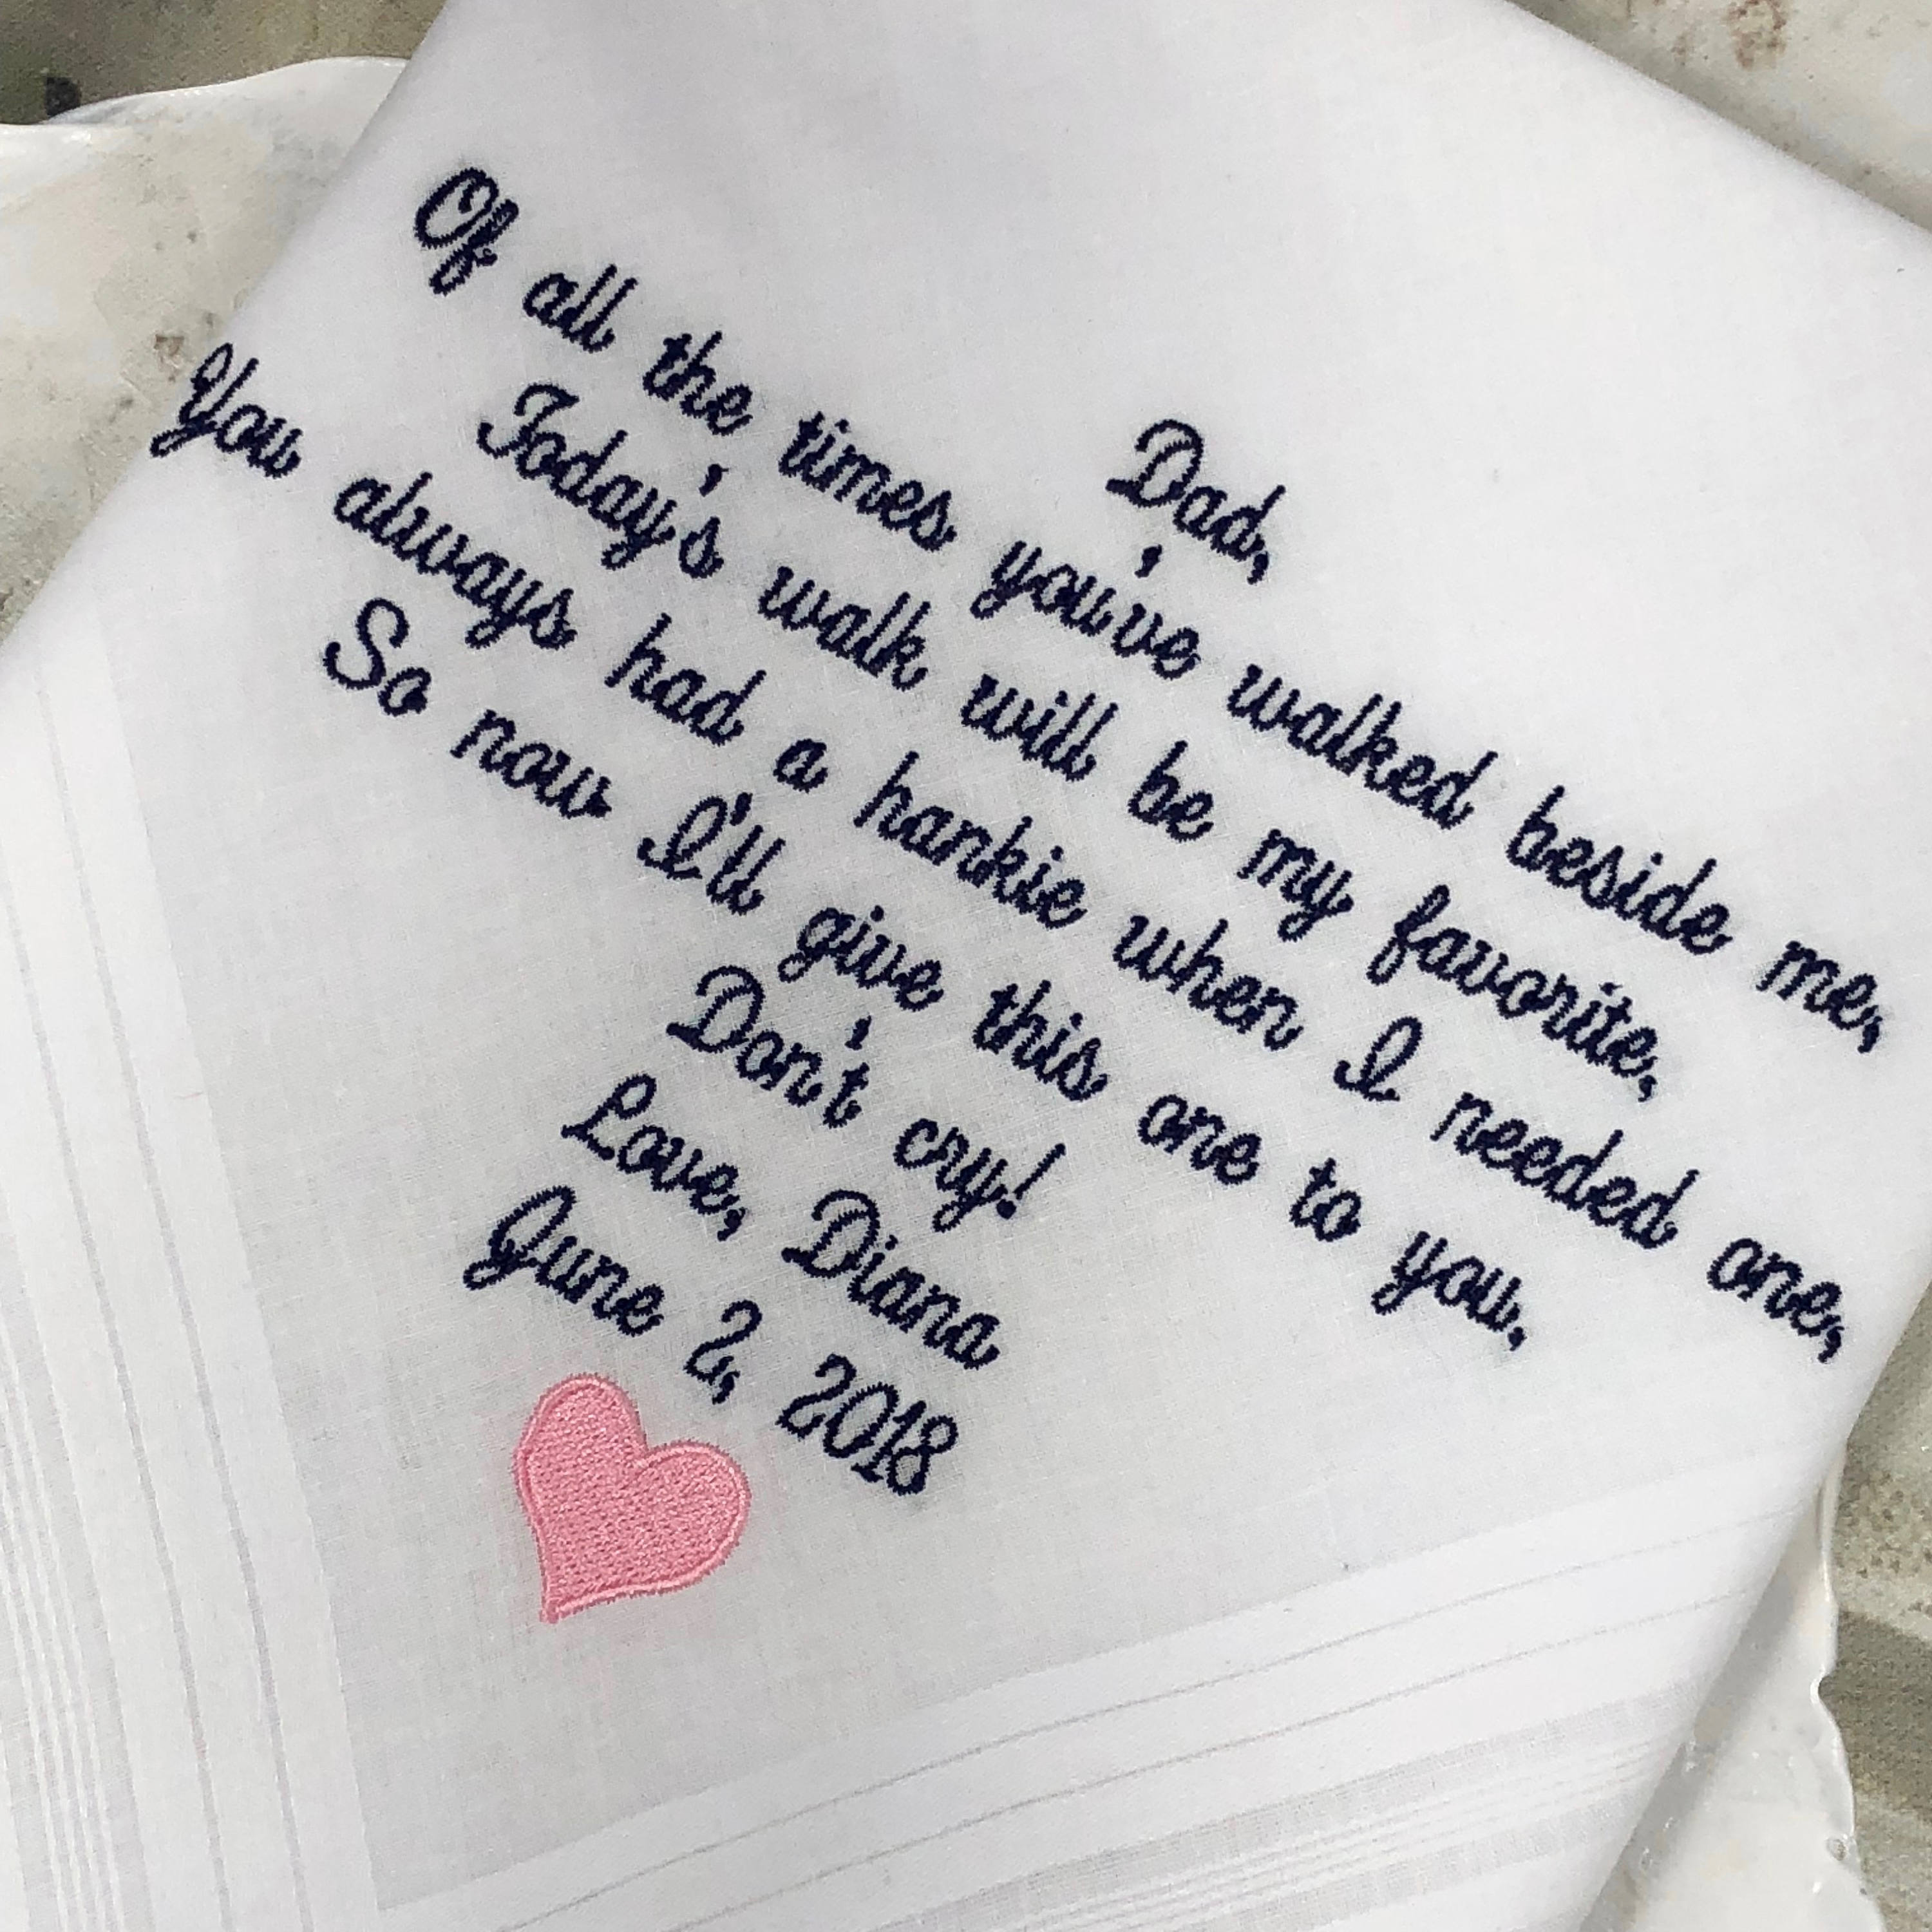 Dad,
Of all the times you've walked beside me,
Today's walk will be my favorite,
You always had a hankie when I needed one,
So now I'll give this one to you,
Don't cry!
Love, Diana
June 2, 2018